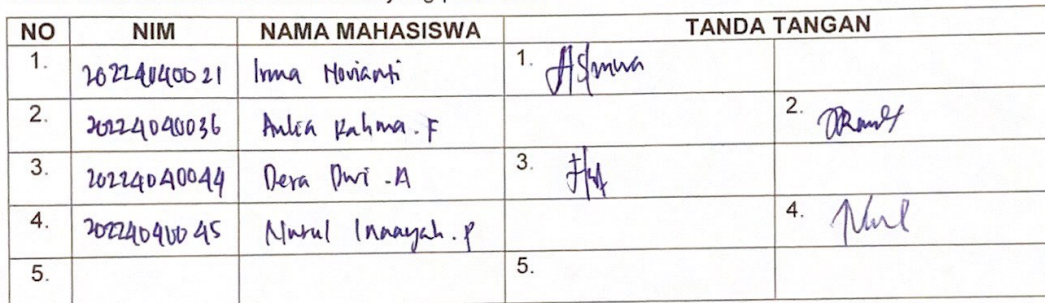 NO NIM NAMA MAHASISWA TANDA TANGAN
1. 20224040021 Irma Novianti 1.
2. 20224040036 Aulia Rahma. F 2.
3. 20224040044 Dera Dwi .A 3.
4. 20224040045 Nurul Inaayah. P 4.
5. 5.